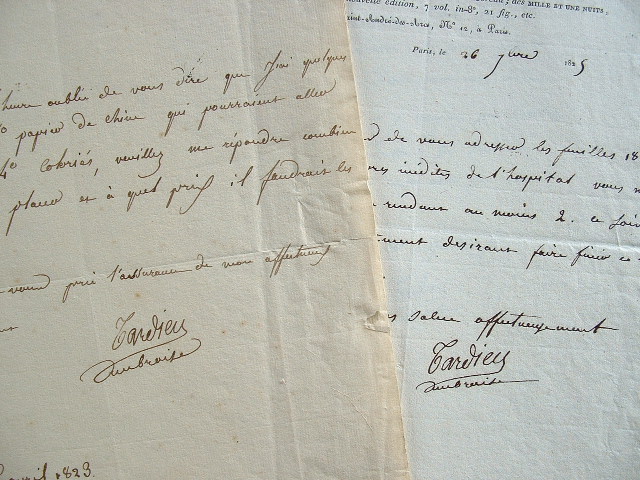 heure oublié de vous dire que j'ai quelques
papier de chine qui pourraient aller
4° coloriés, veuillez me répondre combien
placer et à quel prix il faudrait les
vous prie l'assurance de mon affectueux
Tardieu
Ambroise
avril 1823.
; des MILLE ET UNE NUITS,
nouvelle édition, 7 vol. in-8°, 21 fig., etc.
Saint-André-des-Arcs, N° 12, à Paris.
Paris, le 26 1825
de vous adresser les feuilles 18
inédites de l'hospital vous
rendant au moins 2. ce soir
desirant faire
salue affectueusement
Tardieu
Ambroise